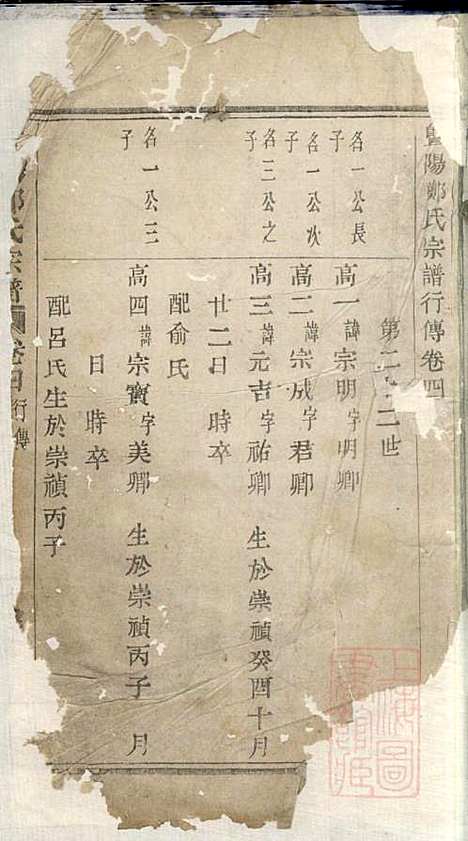 暨陽鄭氏宗譜行傳卷四
第二十二世
名一公長子
高一諱宗明字明卿
名一公次子
高二諱宗成字君卿
名三公之子
高三諱元吉字祐卿 生於崇禎癸酉十月
廿二日 時卒
配俞氏
名一公三子
高四諱宗寶字美卿 生於崇禎丙子 月
日 時卒
配呂氏生於崇禎丙子
鄭氏宗譜 卷四 行傳
上海圖書館藏